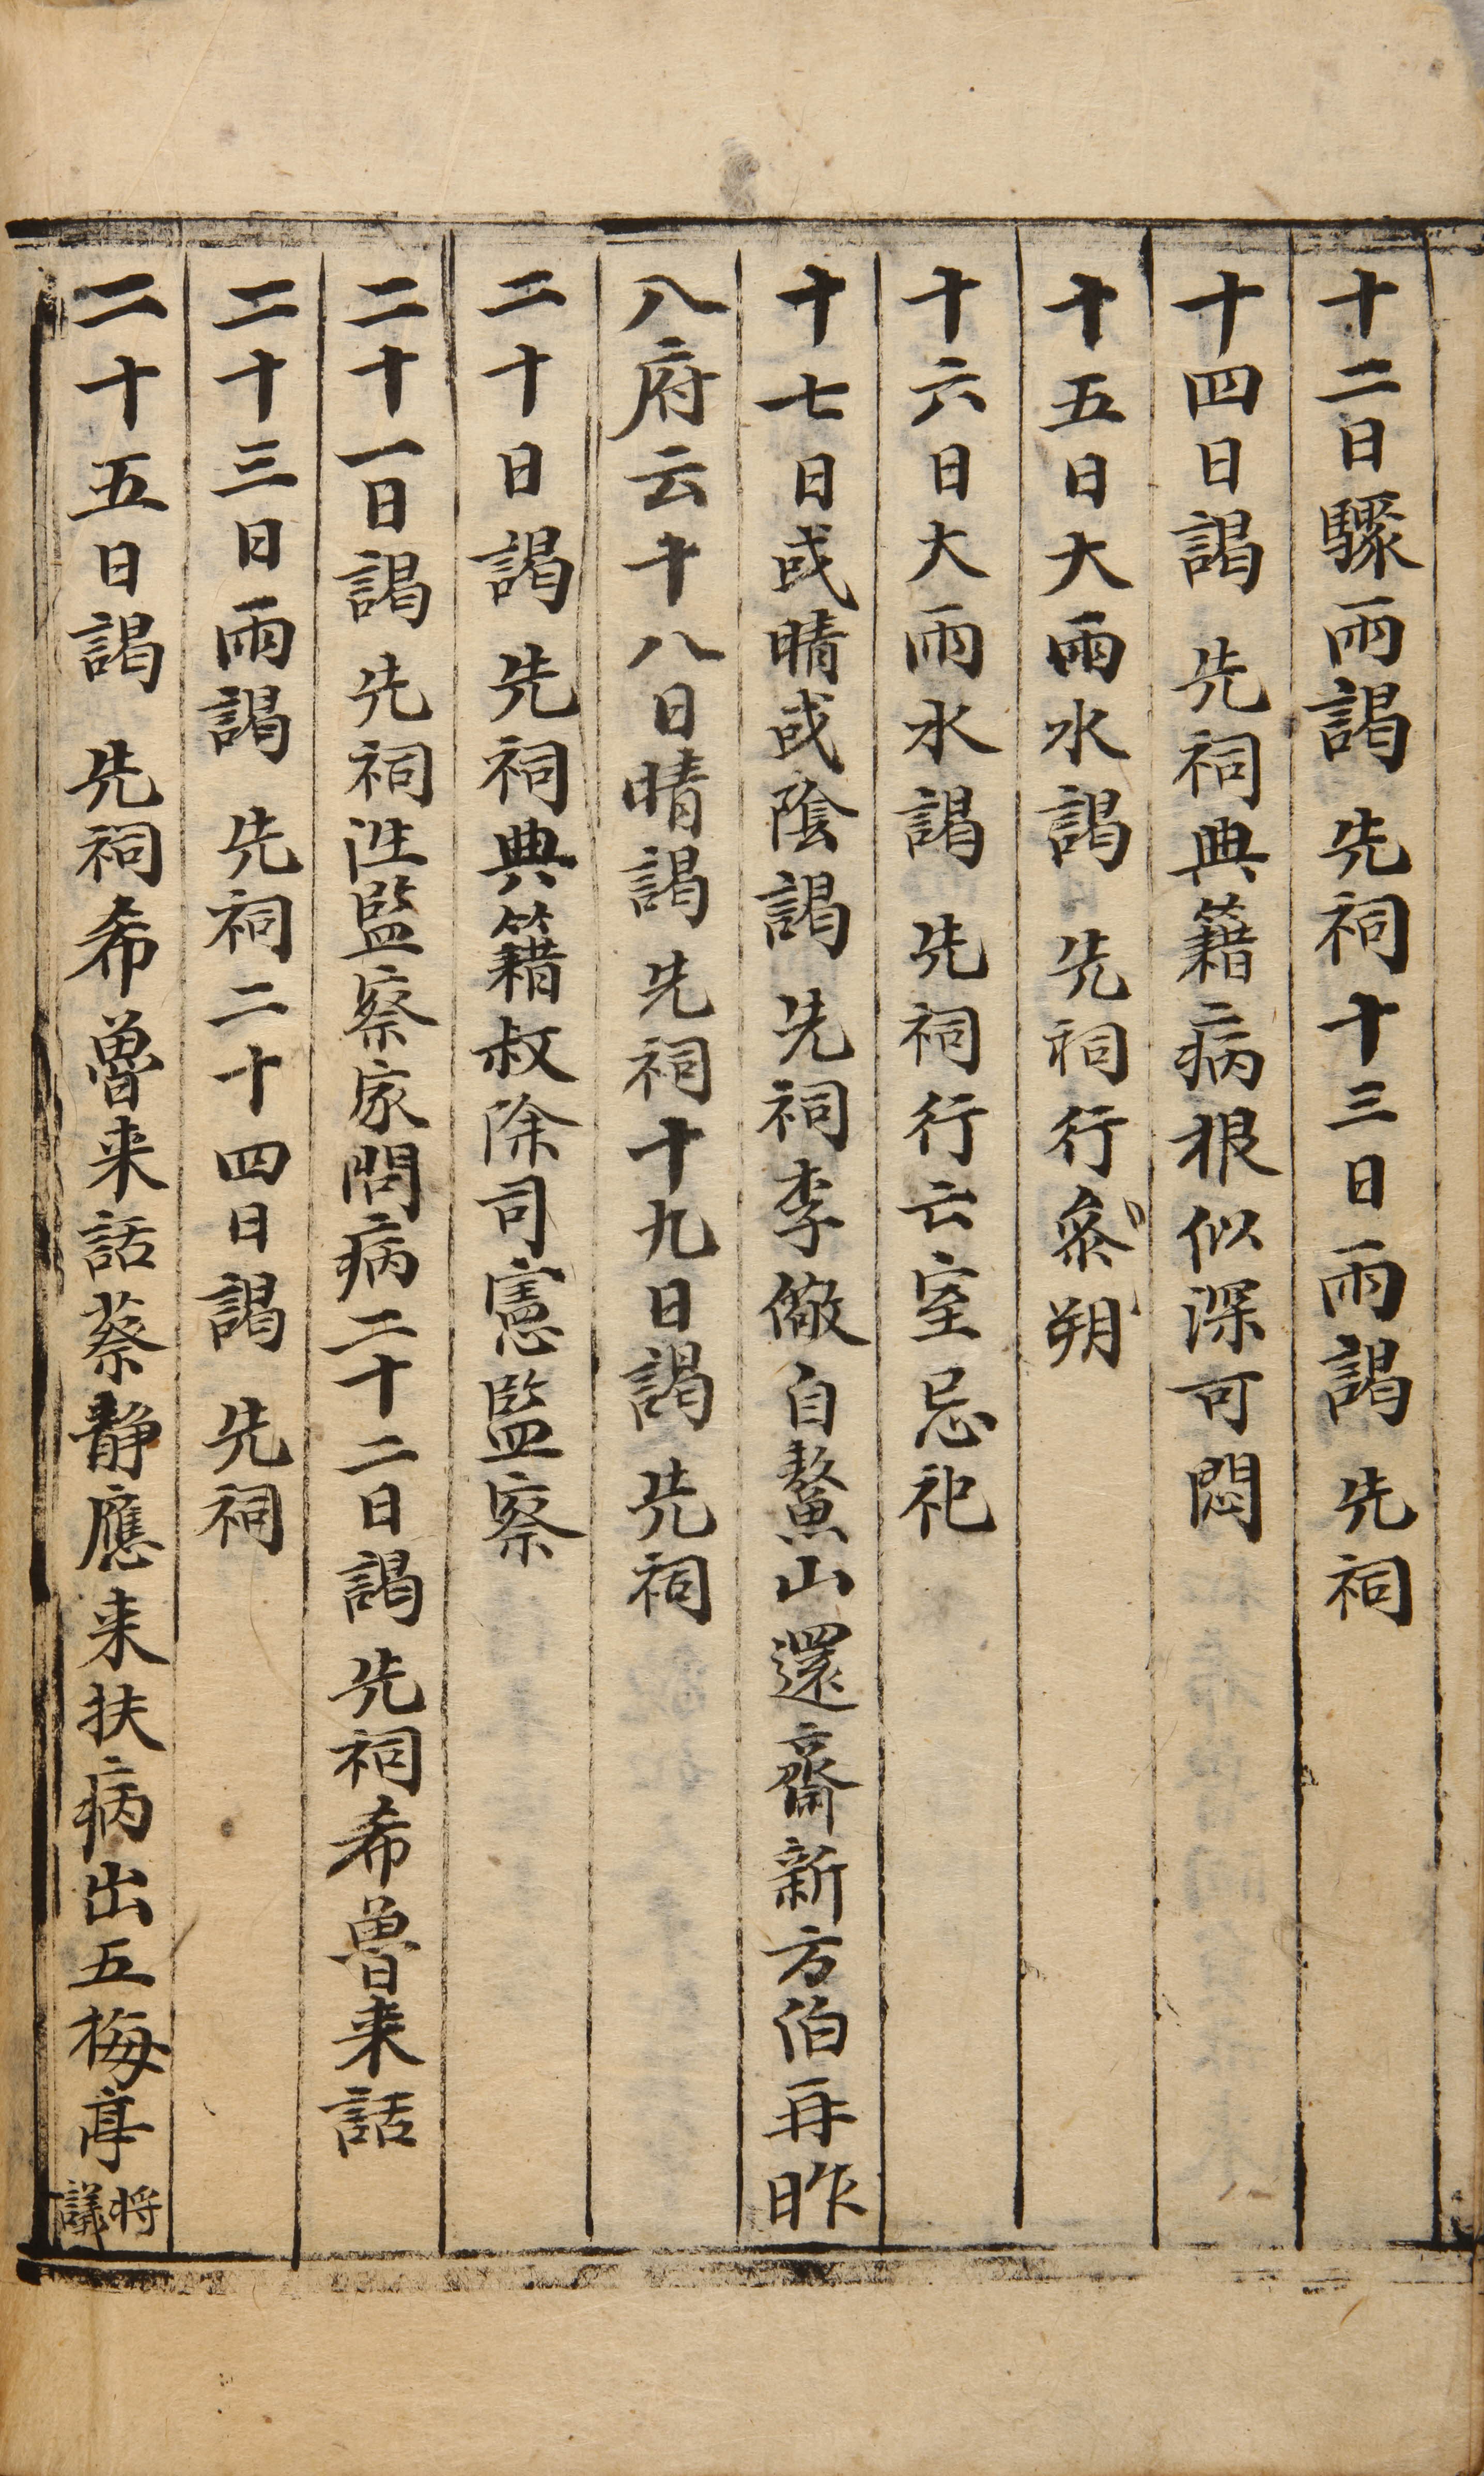 十二日驟雨謁 先祠十三日雨謁 先祠
十四日謁 先祠典籍病根似深可悶
十五日大雨水謁 先祠行叅朔
十六日大雨水謁 先祠行亡室忌祀
十七日或晴或陰謁 先祠李儆自鰲山還齋新方伯再昨
入府云十八日晴謁 先祠十九日謁 先祠
二十日謁 先祠典籍叔除司憲監察
二十一日謁 先祠徃監察家問病二十二日謁 先祠希魯来話
二十三日雨謁 先祠二十四日謁 先祠
二十五日謁 先祠希魯来話蔡静應来扶病出五梅亭将
議